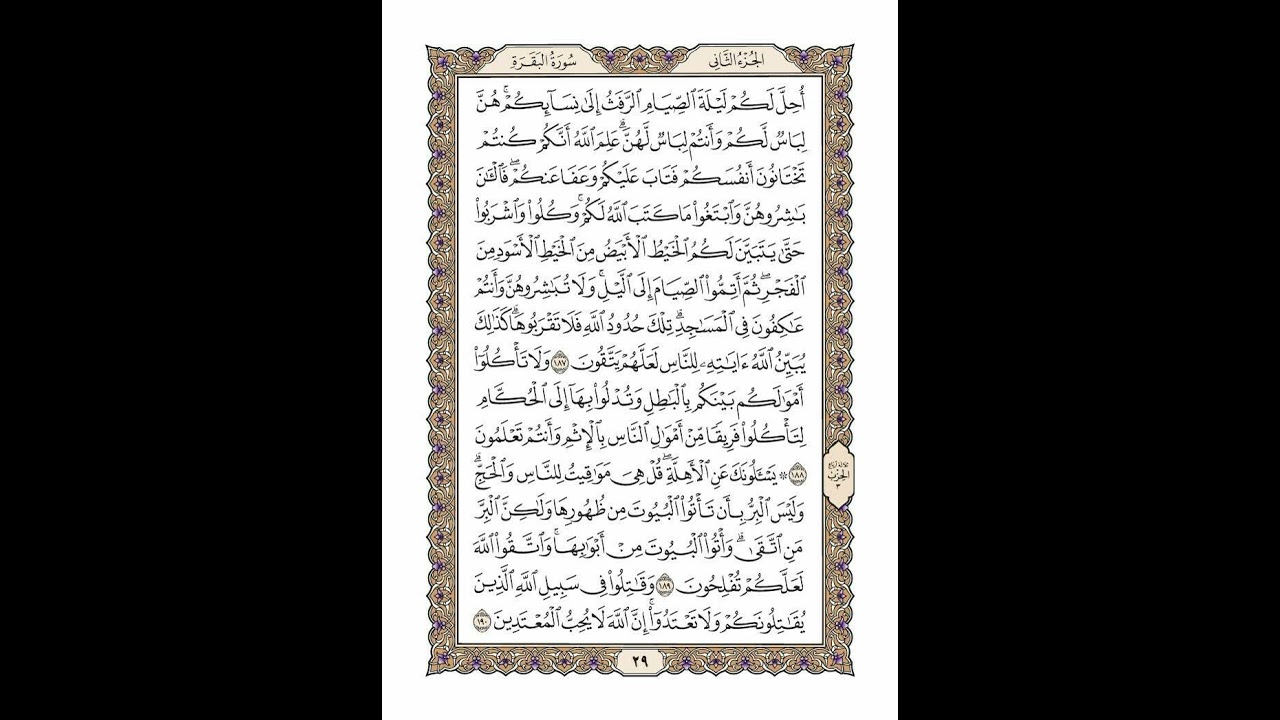 الجُزْءُ الثَّانِي
سُورَةُ البَقَرَةِ
أُحِلَّ لَكُمۡ لَيۡلَةَ ٱلصِّيَامِ ٱلرَّفَثُ إِلَىٰ نِسَآئِكُمۡۚ هُنَّ
لِبَاسٞ لَّكُمۡ وَأَنتُمۡ لِبَاسٞ لَّهُنَّۗ عَلِمَ ٱللَّهُ أَنَّكُمۡ كُنتُمۡ
تَخۡتَانُونَ أَنفُسَكُمۡ فَتَابَ عَلَيۡكُمۡ وَعَفَا عَنكُمۡۖ فَٱلۡـَٰٔنَ
بَٰشِرُوهُنَّ وَٱبۡتَغُواْ مَا كَتَبَ ٱللَّهُ لَكُمۡۚ وَكُلُواْ وَٱشۡرَبُواْ
حَتَّىٰ يَتَبَيَّنَ لَكُمُ ٱلۡخَيۡطُ ٱلۡأَبۡيَضُ مِنَ ٱلۡخَيۡطِ ٱلۡأَسۡوَدِ مِنَ
ٱلۡفَجۡرِۖ ثُمَّ أَتِمُّواْ ٱلصِّيَامَ إِلَى ٱلَّيۡلِۚ وَلَا تُبَٰشِرُوهُنَّ وَأَنتُمۡ
عَٰكِفُونَ فِي ٱلۡمَسَٰجِدِۗ تِلۡكَ حُدُودُ ٱللَّهِ فَلَا تَقۡرَبُوهَاۗ كَذَٰلِكَ
يُبَيِّنُ ٱللَّهُ ءَايَٰتِهِۦ لِلنَّاسِ لَعَلَّهُمۡ يَتَّقُونَ ١٨٧ وَلَا تَأۡكُلُوٓاْ
أَمۡوَٰلَكُم بَيۡنَكُم بِٱلۡبَٰطِلِ وَتُدۡلُواْ بِهَآ إِلَى ٱلۡحُكَّامِ
لِتَأۡكُلُواْ فَرِيقٗا مِّنۡ أَمۡوَٰلِ ٱلنَّاسِ بِٱلۡإِثۡمِ وَأَنتُمۡ تَعۡلَمُونَ
١٨٨ ۞ يَسۡـَٔلُونَكَ عَنِ ٱلۡأَهِلَّةِۖ قُلۡ هِيَ مَوَٰقِيتُ لِلنَّاسِ وَٱلۡحَجِّۗ
وَلَيۡسَ ٱلۡبِرُّ بِأَن تَأۡتُواْ ٱلۡبُيُوتَ مِن ظُهُورِهَا وَلَٰكِنَّ ٱلۡبِرَّ
مَنِ ٱتَّقَىٰۗ وَأۡتُواْ ٱلۡبُيُوتَ مِنۡ أَبۡوَٰبِهَاۚ وَٱتَّقُواْ ٱللَّهَ
لَعَلَّكُمۡ تُفۡلِحُونَ ١٨٩ وَقَٰتِلُواْ فِي سَبِيلِ ٱللَّهِ ٱلَّذِينَ
يُقَٰتِلُونَكُمۡ وَلَا تَعۡتَدُوٓاْۚ إِنَّ ٱللَّهَ لَا يُحِبُّ ٱلۡمُعۡتَدِينَ ١٩٠
الحِزْب
٣
٢٩